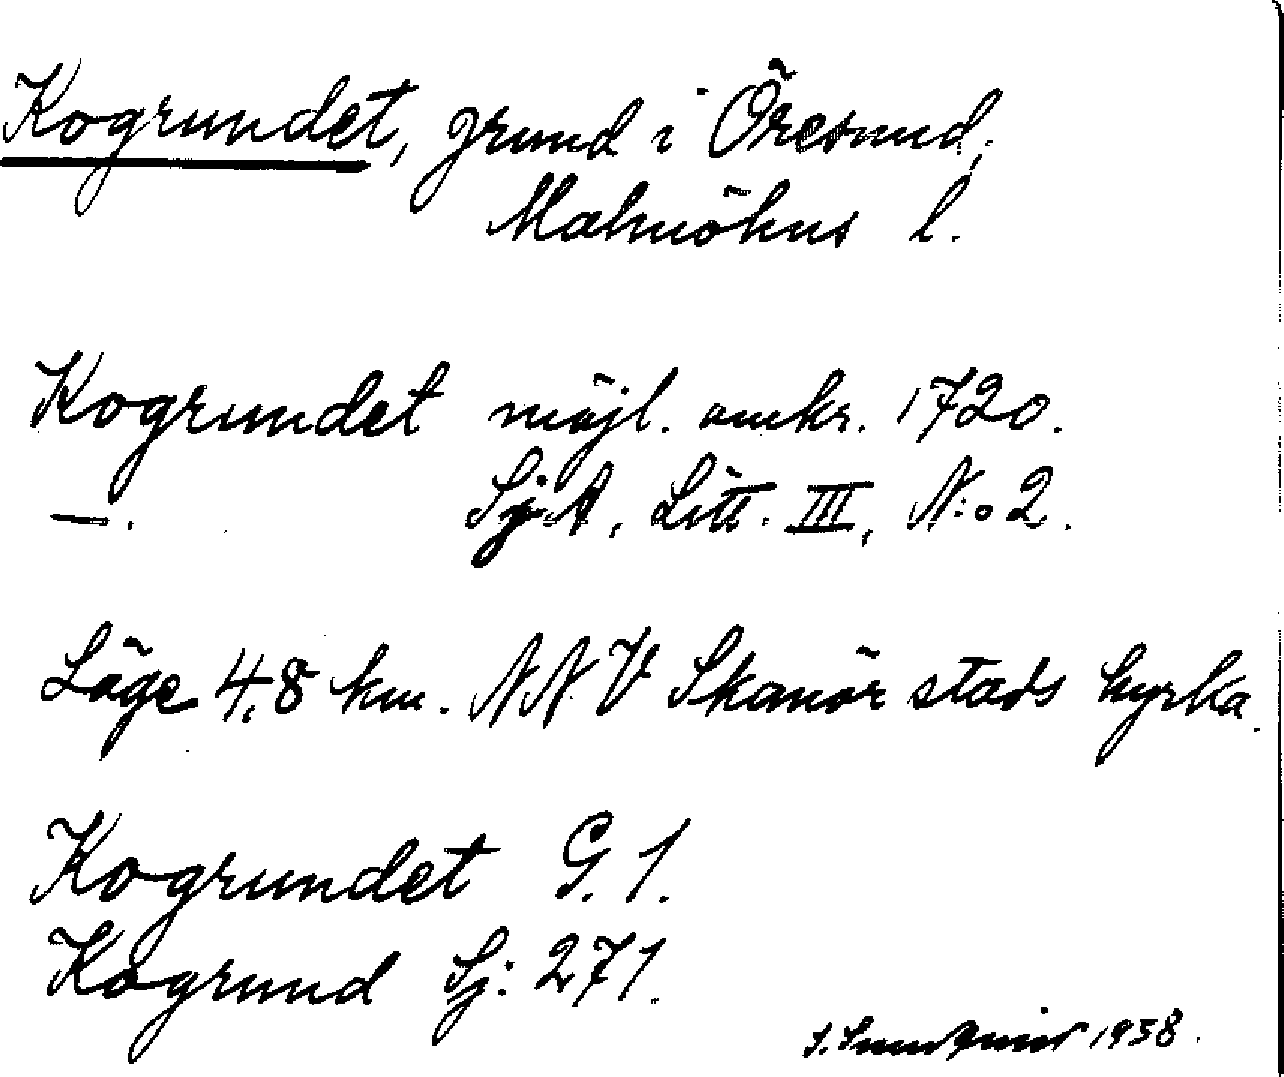 Kogrundet, grund i Öresund,
Malmöhus l.
Kogrundet möjl. omkr. 1720.
—. SjA, Litt. III, N:o 2.
Läge 4,8 km. NNV Skanör stads kyrka.
Kogrundet G. 1.
Kogrund Sj: 271.
1938.